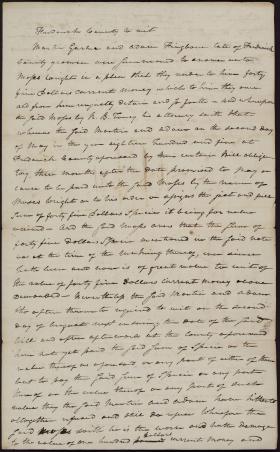 Frederick County to wit
Martin Garber and Adam Fingboun late of Frederick
County grower were summoned to answer unto
Moses Wright in a plea that they render to him forty
five Dollars current money which to him they owe
and from him unjustly detain and so forth and whereupon
the said Moses by R. B. Taney his attorney saith that
whereas the said Martin and Adam on the second day
of May in the year eighteen hundred and five at
Frederick County aforesaid by their certain Bill obliga-
tory three months after the date promised to pay or
cause to be paid unto the said Moses by the name of
Moses Wright or to his order or assigns the just and full
sum of forty five Dollars Specie it being for value
received And the said Moses avers that the sum of
forty five dollars Specie mentioned in the said note
was at the time of the making thereof, ever since
hath been and now is of great value to wit of
the value of forty five Dollars current money above
demanded Nevertheless the said Martin and Adam
tho often thereto required to wit on the second
day of August next ensuing the date of the said
bill and often afterwards at the County aforesaid
have not yet paid the said sum of Specie or the
value thereof as aforesaid or any part of either of them
but to pay the said sum of Specie or any part
thereof or the value thereof or any part of such
value they the said Martin and Adam have hitherto
altogether refused and still do refuse Wherefore the
said Moses saith he is the worse and hath damage
to the value of one hundred dollars current money and